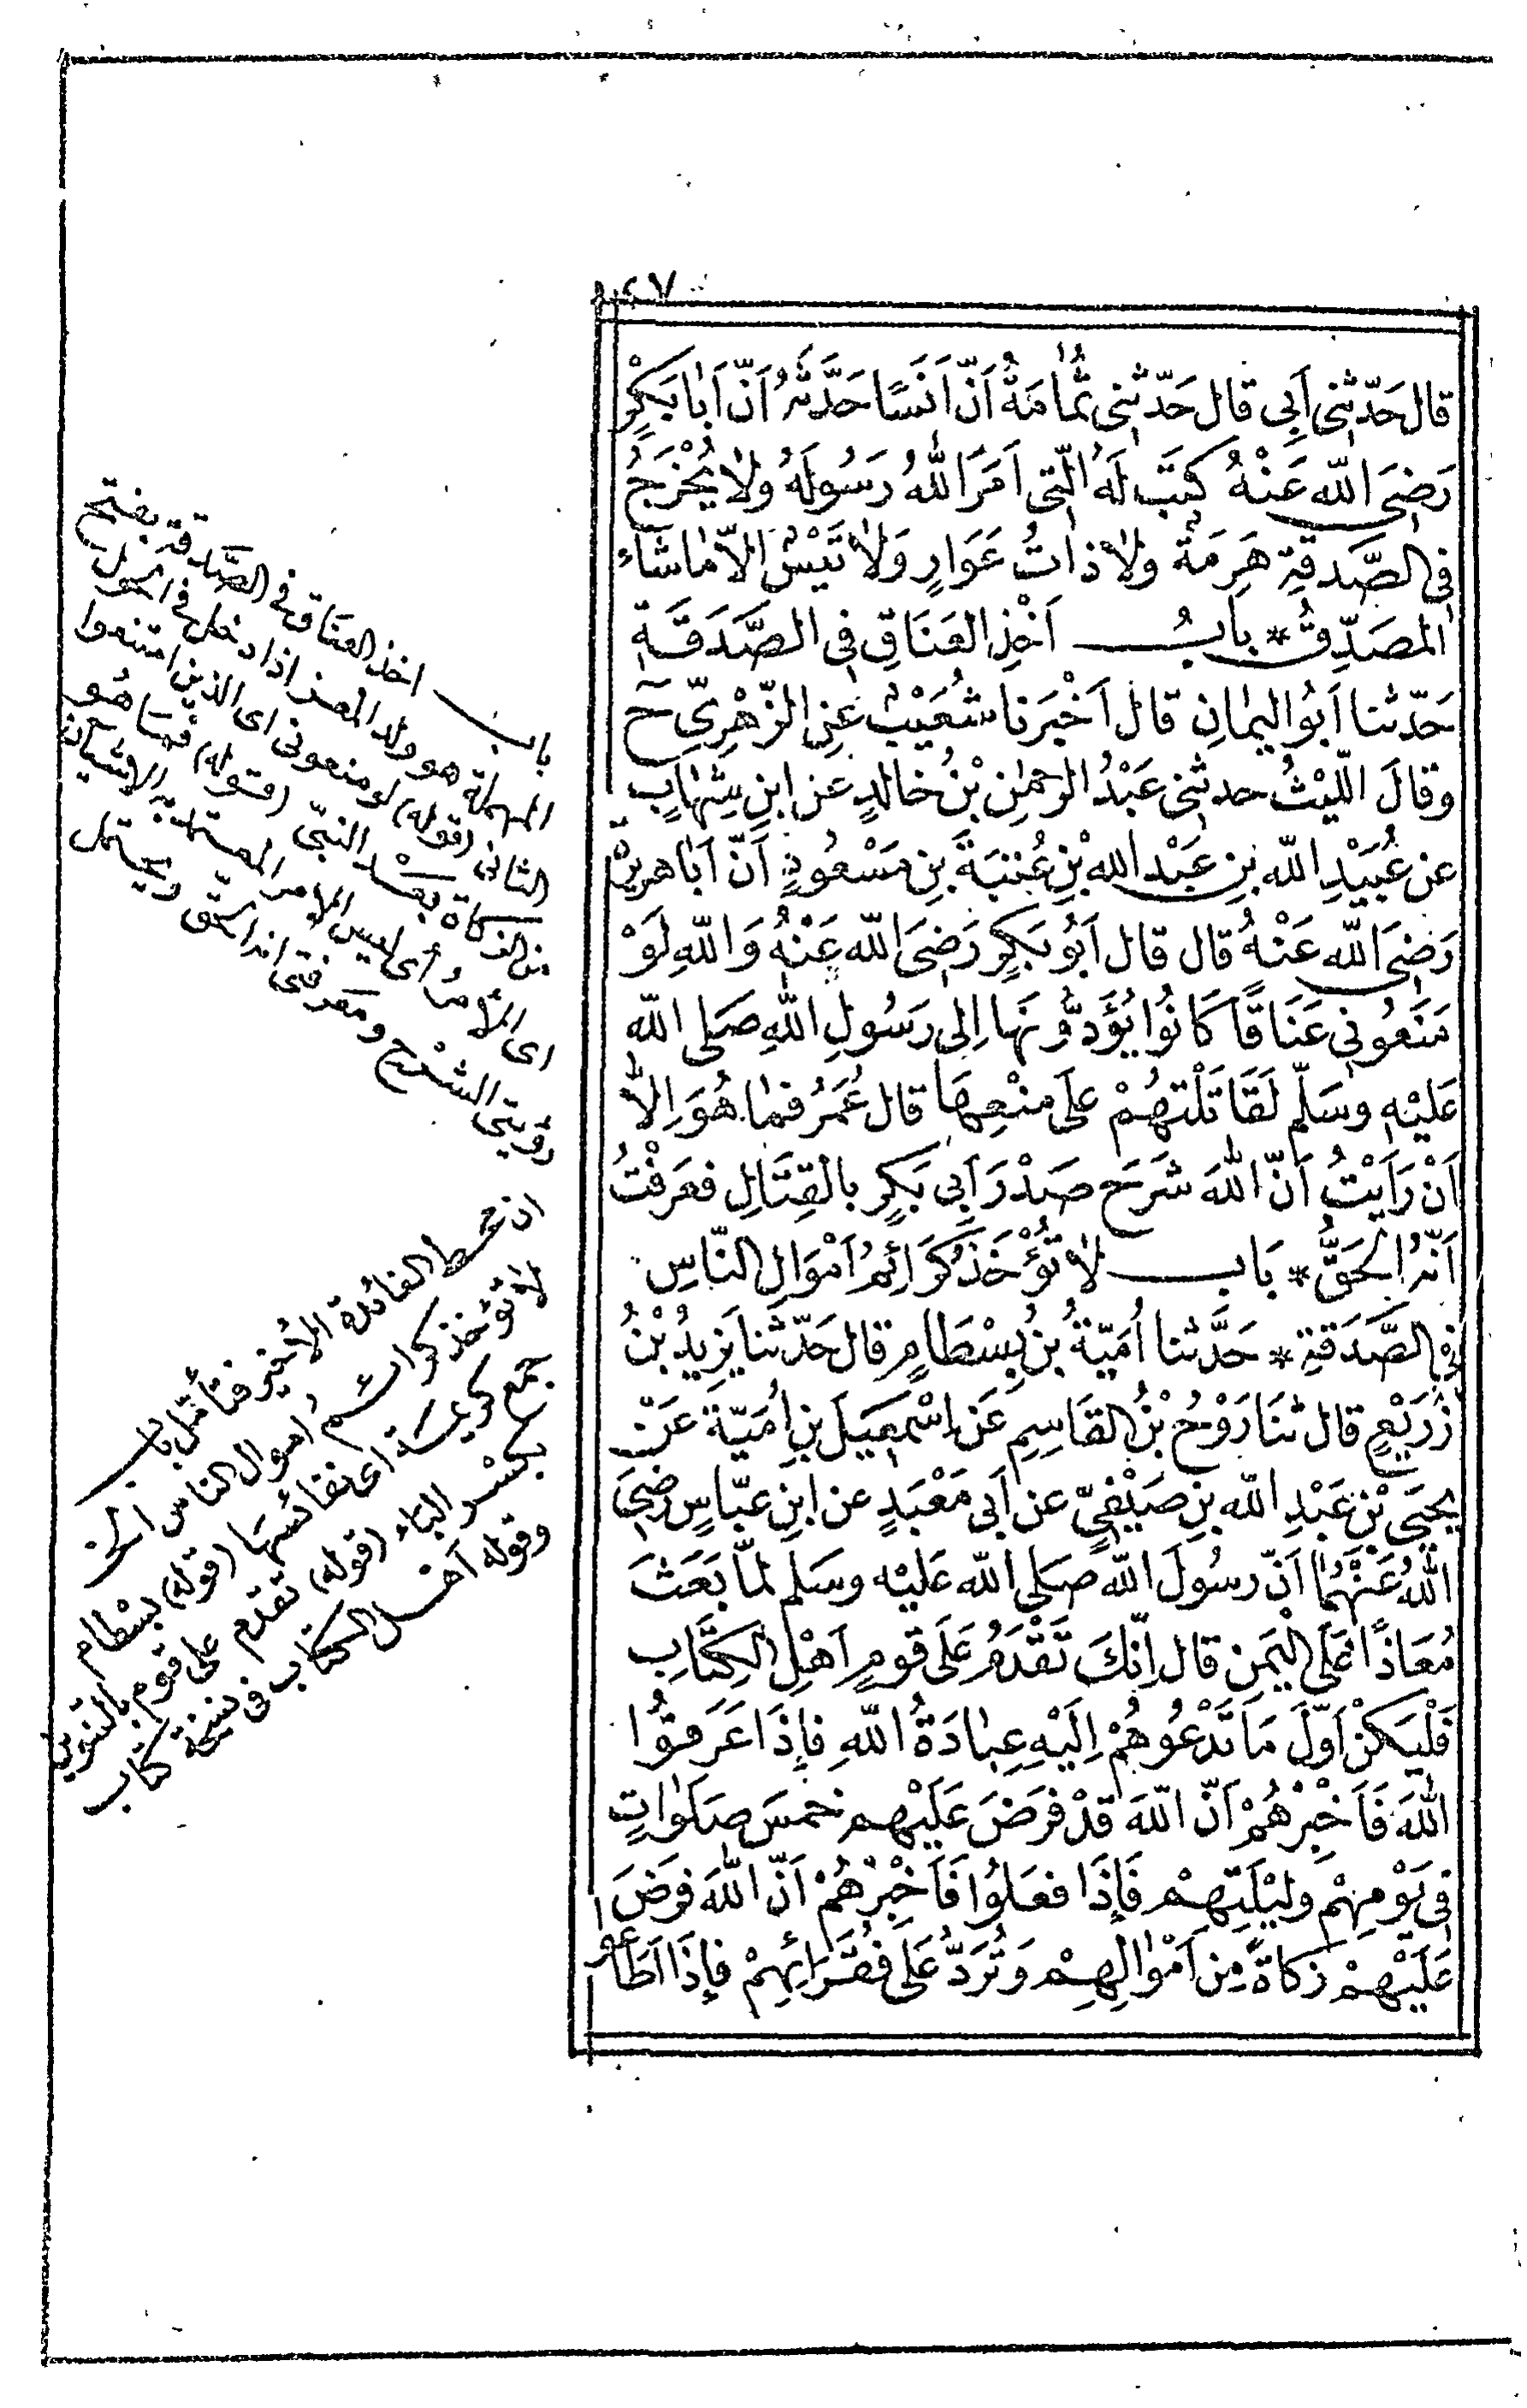 ٤٧
قال حَدّثنى اَبِى قال حَدّثنى ثُمامَةُ اَنّ اَنَسًا حَدَّثَهُ اَنّ اَبا بَكْرٍ
رَضِىَ اللّه عَنْهُ كَتَبَ لَهُ الّتى اَمَرَ اللّٰهُ رَسُولَهُ ولا يُخْرَجُ
فى الصَّدقةِ هَرِمَةٌ ولا ذاتُ عَوَارٍ وَلا تَيْسٌ الّا ما شآء
المصَدِّقُ * بابُ اَخْذِ العَنَاقِ فِى الصَّدَقَةِ
حَدّثنا اَبُو اليمانِ قال اَخْبَرَنا شُعَيْبٌ عنِ الزّهْرِىِّ ح
وقالَ اللَّيْثُ حدثنى عَبْدُ الرحمٰنِ بْنُ خالدٍ عن ابنِ شِهابٍ
عن عُبَيْدِ اللّه بنِ عَبْدِ اللهِ بْنِ عُتْبَةَ بنِ مَسْعُودٍ اَنّ اَبا هريرة
رَضِىَ اللّه عَنْهُ قال قال اَبُو بَكرٍ رَضِىَ اللّه عَنْهُ وَاللّهِ لَوْ
مَنَعُونِى عَنَاقًا كَانُوا يُؤَدُّونَهَا اِلى رَسُولِ اللّٰهِ صَلى اللّه
عَلَيْهِ وسَلّم لَقَاتَلْتهُمْ عَلى منْعِهَا قال عُمَرُ فما هُوَ اِلّا
اَنْ رَاَيْتُ اَنّ اللّٰهَ شَرَحَ صَدْرَ اَبِى بَكرٍ بالقِتَالِ فعَرفْتُ
اَنّهُ الحَقُّ * بَاب لا تُؤْخَذُ كَرَائِمُ اَمْوَالِ النّاسِ
فى الصَّدَقةِ * حَدَّثنا اُمَيّةُ بنُ بِسْطَامٍ قال حَدّثنا يَزِيدُ بْنُ
زُرَيْعٍ قال ثنَا رَوْحُ بْنُ القَاسِمِ عَن اِسْمٰعِيَل بنِ اُمَيّةَ عَنْ
يحيَى بْنِ عَبْدِ اللّه بنِ صَيْفىٍّ عن اَبى مَعْبَدٍ عن ابنِ عبّاسٍ رضِىَ
اللّٰهُ عَنْهُما اَنّ رسُولَ اللّه صَلى اللّه عَليْه وسَلم لمّا بَعَثَ
مُعَاذًا عَلَى اليَمن قال اِنّكَ تَقْدَمُ عَلَى قومٍ اَهْلِ الكِتَابِ
فَلْيَكنْ اَوّلَ مَا تَدْعُوهُمْ اِلَيْهِ عِبادَةُ اللّهِ فاِذَا عَرَفُوا
اللّٰهَ فَاَخْبِرْهُمْ اَنّ اللّٰهَ قدْ فرَضَ عَلَيْهم خمسَ صلواتٍ
فى يَوْمِهِمْ وليْلَتِهمْ فَاِذَا فعَلُوا فَاَخْبِرْهُمْ اَنّ اللّٰهَ فرَضَ
عَلَيْهمْ زكاةً مِن اَمْوالِهِمْ وَتُرَدُّ عَلَى فُقَرَائِهِمْ فاِذَا اَطَاعوا
باب اخذ العناق فى الصَّدقة بفتح
المهملة هو ولد المعز اذا دخل فى الحول
الثانى (قوله) لو منعونى اى الذين امتنعوا
من الزكاة بعد النبىّ (قوله) فما هو
اى الامر أى ليس الامر الاتيان
ومعرفتى انه الحق ويحتمل
رؤيتى الشرح
ان محط الفائدة الاخير فتأمل باب
لا تؤخذ كرائم اموال الناس الخ
جمع كريمة اى نفائسها (قوله) بسطام
بكسْر الباء (قوله) تقدم على قوم بالتنوين
وقوله اهل الكتاب فى نسخة كتاب